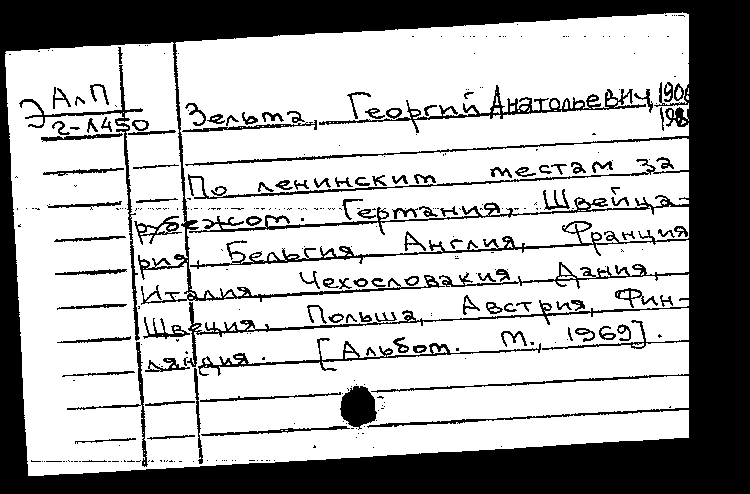 Э АлП
2-Л450
Зельма, Георгий Анатольевич, 1906
По ленинским местам за
рубежом. Германия, Швейца-
рия, Бельгия, Англия, Франция
Италия, Чехословакия, Дания,
Швеция, Польша, Австрия, Фин-
ляндия. [Альбом. М., 1969].